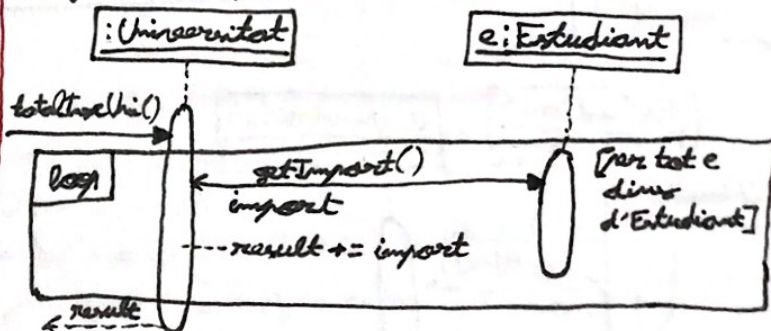 :Universitat
e:Estudiant
totalInscUni()
loop
getImport()
import
[per tot e
dins
d'Estudiant]
result += import
result